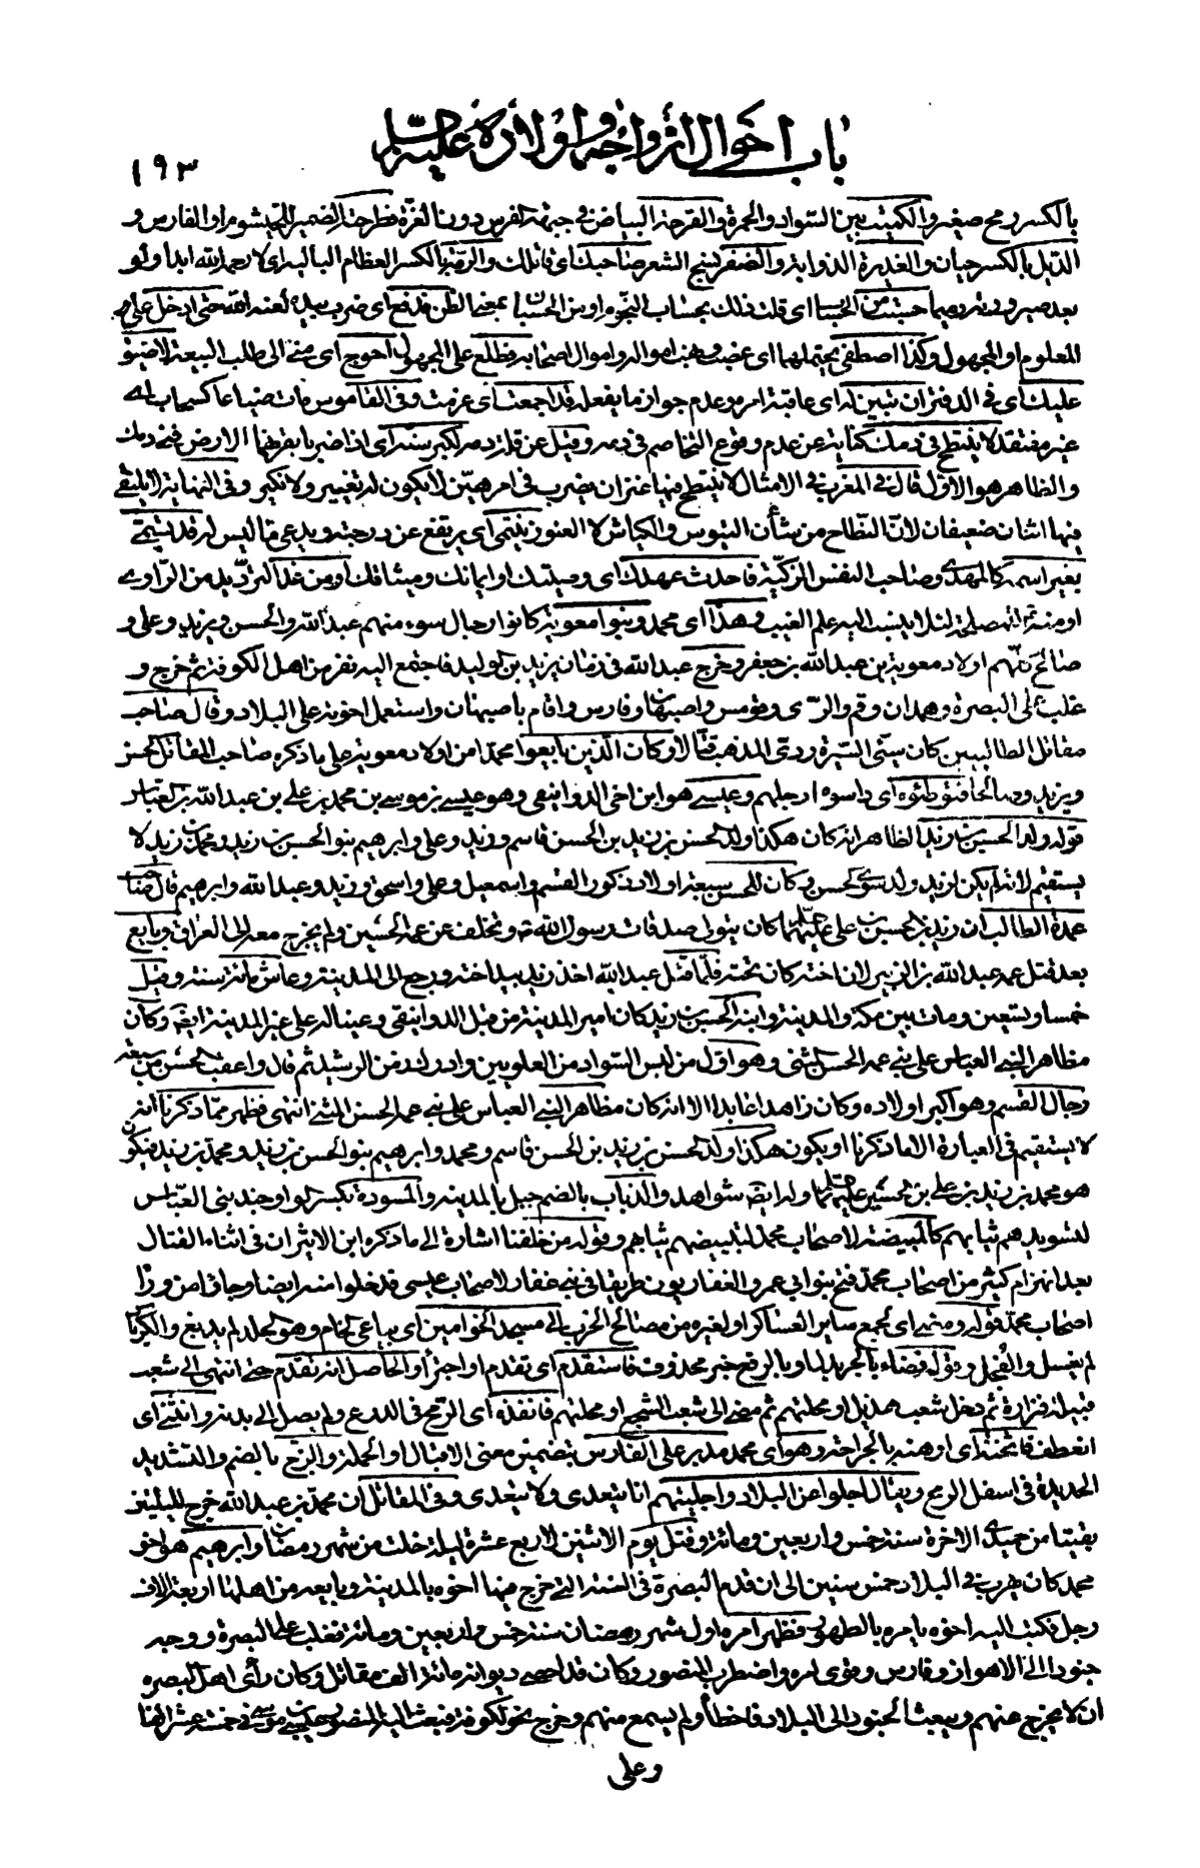 باب احوال ازواجه و اولاده عليه السلم
١٩٣
بالكسر رمح صغير والكميت بين السواد والحمرة والقرحة البياض في جبهة الفرس دون الغرة فطرحه الضمير للخيشوم او الفارس و
الذيل بالكسر جبان والغديرة الذوابة والضفر نسج الشعر صاحبك اى قاتلك والرمة بالكسر العظام البالية اى لا رحمه الله ابدا ولو
بعد صيرورته رميما حسبت من الحساب اى قلت ذلك بحساب النجوم او من الحسبان بمعنى الظن فدفع اى ضرب بيده لعنه الله حتى ادخل على
المعلوم او المجهول وكذا اصطفى يحتملهما اى غصب ونهب امواله واموال اصحابه فطلع على المجهول احوج اى منى الى طلب البيعة لا ضيق
عليك اى في الدفتر ان تبين له اى عاقبة امره وعدم جواز ما يفعله قد اجمعت اى عزمت وفى القاموس مات ضياعا كسحاب اى
غير مفتقد لا ينتطح في دمك كناية عن عدم وقوع التخاصم في دمه وقيل عن قلة دمه لكبر سنه اى اذا ضربا بقرنهما الارض فنى دمك
والظاهر هو الاول قال في المغرب في الامثال لا ينتطح فيها عنزان يضرب فى امر هين لا يكون له تغيير ولا نكير وفى النهاية لا يلتقى
فيها اثنان ضعيفان لان النطاح من شأن التيوس والكباش لا العنوز ينتمى اى يرتفع عن درجته ويدعى ما ليس له قد يتسمى
بغير اسمه كالمهدى وصاحب النفس الزكية فاحدث عهدك اى وصيتك او ايمانك وميثاقك او من غد الترديد من الراوى
او منه ع لمصلحة لئلا ينسب اليه علم الغيب وهذا اى محمد وبنوا معوية كانوا رجال سوء منهم عبد الله والحسن ويزيد وعلى و
صالح كلهم اولاد معوية بن عبد الله بن جعفر وخرج عبد الله فى زمان يزيد بن الوليد فاجتمع اليه نفر من اهل الكوفة ثم خرج و
غلب على البصرة وهمدان وقم والرى وقومس واصبهان وفارس واقام باصبهان واستعمل اخوته على البلاد وقال صاحب
مقاتل الطالبيين كان سيئ السيرة ردى المذهب قتالا وكان الذين بايعوا محمدا من اولاد معوية على ما ذكره صاحب المقاتل الحسن
ويزيد وصالحا فتوطؤه اى داسوه ارجلهم وعيسى هو ابن اخى الدوانيقى وهو عيسى بن موسى بن محمد بن على بن عبد الله بن العباس
قوله ولد الحسن بن زيد الظاهر انه كان هكذا ولد الحسن بن زيد بن الحسن قاسم وزيد وعلى وابرهيم بنو الحسن بن زيد ومحمد بن زيد لا
يستقيم لانه لم يكن لزيد ولد سوى الحسن وكان للحسن سبعة اولاد ذكور القسم واسمعيل وعلى واسحق وزيد وعبد الله وابرهيم قال صاحب
عمدة الطالب ان زيد بن الحسن بن على عليهما السلم كان يتولى صدقات رسول الله ص وتخلف عن عمه الحسين ولم يخرج معه الى العراق وبايع
بعد قتل عمه عبد الله بن الزبير لان اخته كان تحته فلما قتل عبد الله اخذ زيد بيد اخته ورجع الى المدينة وعاش مائة سنة وقيل
خمسا وتسعين ومات بين مكة والمدينة وابنه الحسن بن زيد كان امير المدينة من قبل الدوانيقى وعينا له على غير المدينة ايضا وكان
مظاهرا لبنى العباس على بنى عمه الحسن المثنى وهو اول من لبس السواد من العلويين وادرك زمن الرشيد ثم قال واعقب الحسن من سبعة
رجال القسم وهو اكبر اولاده وكان زاهدا عابدا الا انه كان مظاهرا لبنى العباس على بنى عمه الحسن المثنى انتهى فظهر مما ذكرنا انه
لا يستقيم فى العبارة الا ما ذكرنا او يكون هكذا ولد الحسن بن زيد بن الحسن قاسم ومحمد وابرهيم بنو الحسن بن زيد ومحمد بن زيد فيكون
هو محمد بن زيد بن على بن الحسين عليهم السلم وله ايضا شواهد والذباب بالضم جبل بالمدينة والمسودة بكسر الواو جند بنى العباس
لتسويدهم ثيابهم كالمبيضة لاصحاب محمد لتبييضهم ثيابهم وقوله من خلفنا اشارة الى ما ذكره ابن الاثير ان فى اثناء القتال
بعد انهزام كثير من اصحاب محمد فتح بنو ابى عمرو الغفاريون طريقا فى بنى غفار لاصحاب عيسى فدخلوا منه ايضا وجاؤا من وراء
اصحاب محمد قوله ومضى اى لجمع ساير العساكر او لغيره من مصالح الحرب الى مسجد الخوامين اى بياعى الخام وهو الجلد لم يدبغ والكرباس
لم يغسل والفجل وقوله فضاء بالجر بدل او بالرفع خبر محذوف فاستقدم اى تقدم او اجترأ والحاصل انه تقدم حتى انتهى الى شعب
قبيلة فزارة ثم دخل شعب هذيل او محلتهم ثم مضى الى شعب اشجع او محلتهم فانفذه اى الرمح فى الدرع ولم يصل الى بدنه وانثنى اى
انعطف فاثخنه اى اوهنه بالجراحة وهو اى محمد مدبر على الفارس بتضمين معنى الاقبال او الحملة والزج بالضم والتشديد
الحديدة فى اسفل الرمح ويقال اجلوا من البلاد واجليتهم انا يتعدى ولا يتعدى وفى المقاتل ان محمد بن عبد الله خرج لليلتين
بقيتا من جمادى الاخرة سنة خمس واربعين ومائة وقتل يوم الاثنين لاربع عشرة ليلة خلت من شهر رمضان وابرهيم هو اخو
محمد كان يهرب فى البلاد خمس سنين الى ان قدم البصرة فى السنة التى خرج فيها اخوه بالمدينة وبايعه من اهلها اربعة الاف
رجل فكتب اليه اخوه يامره بالظهور فظهر امره اول شهر رمضان سنة خمس واربعين ومائة فغلب على البصرة ووجه
جنودا الى الاهواز وفارس وقوى امره واضطرب المنصور وكان قد احصى ديوانه مائة الف مقاتل وكان رأى اهل البصرة
ان لا يخرج عنهم ويبعث الجنود الى البلاد فاخطأ ولم يسمع منهم وخرج نحو الكوفة فبعث اليه المنصور عيسى بن موسى فى خمسة عشر الفا
وعلى